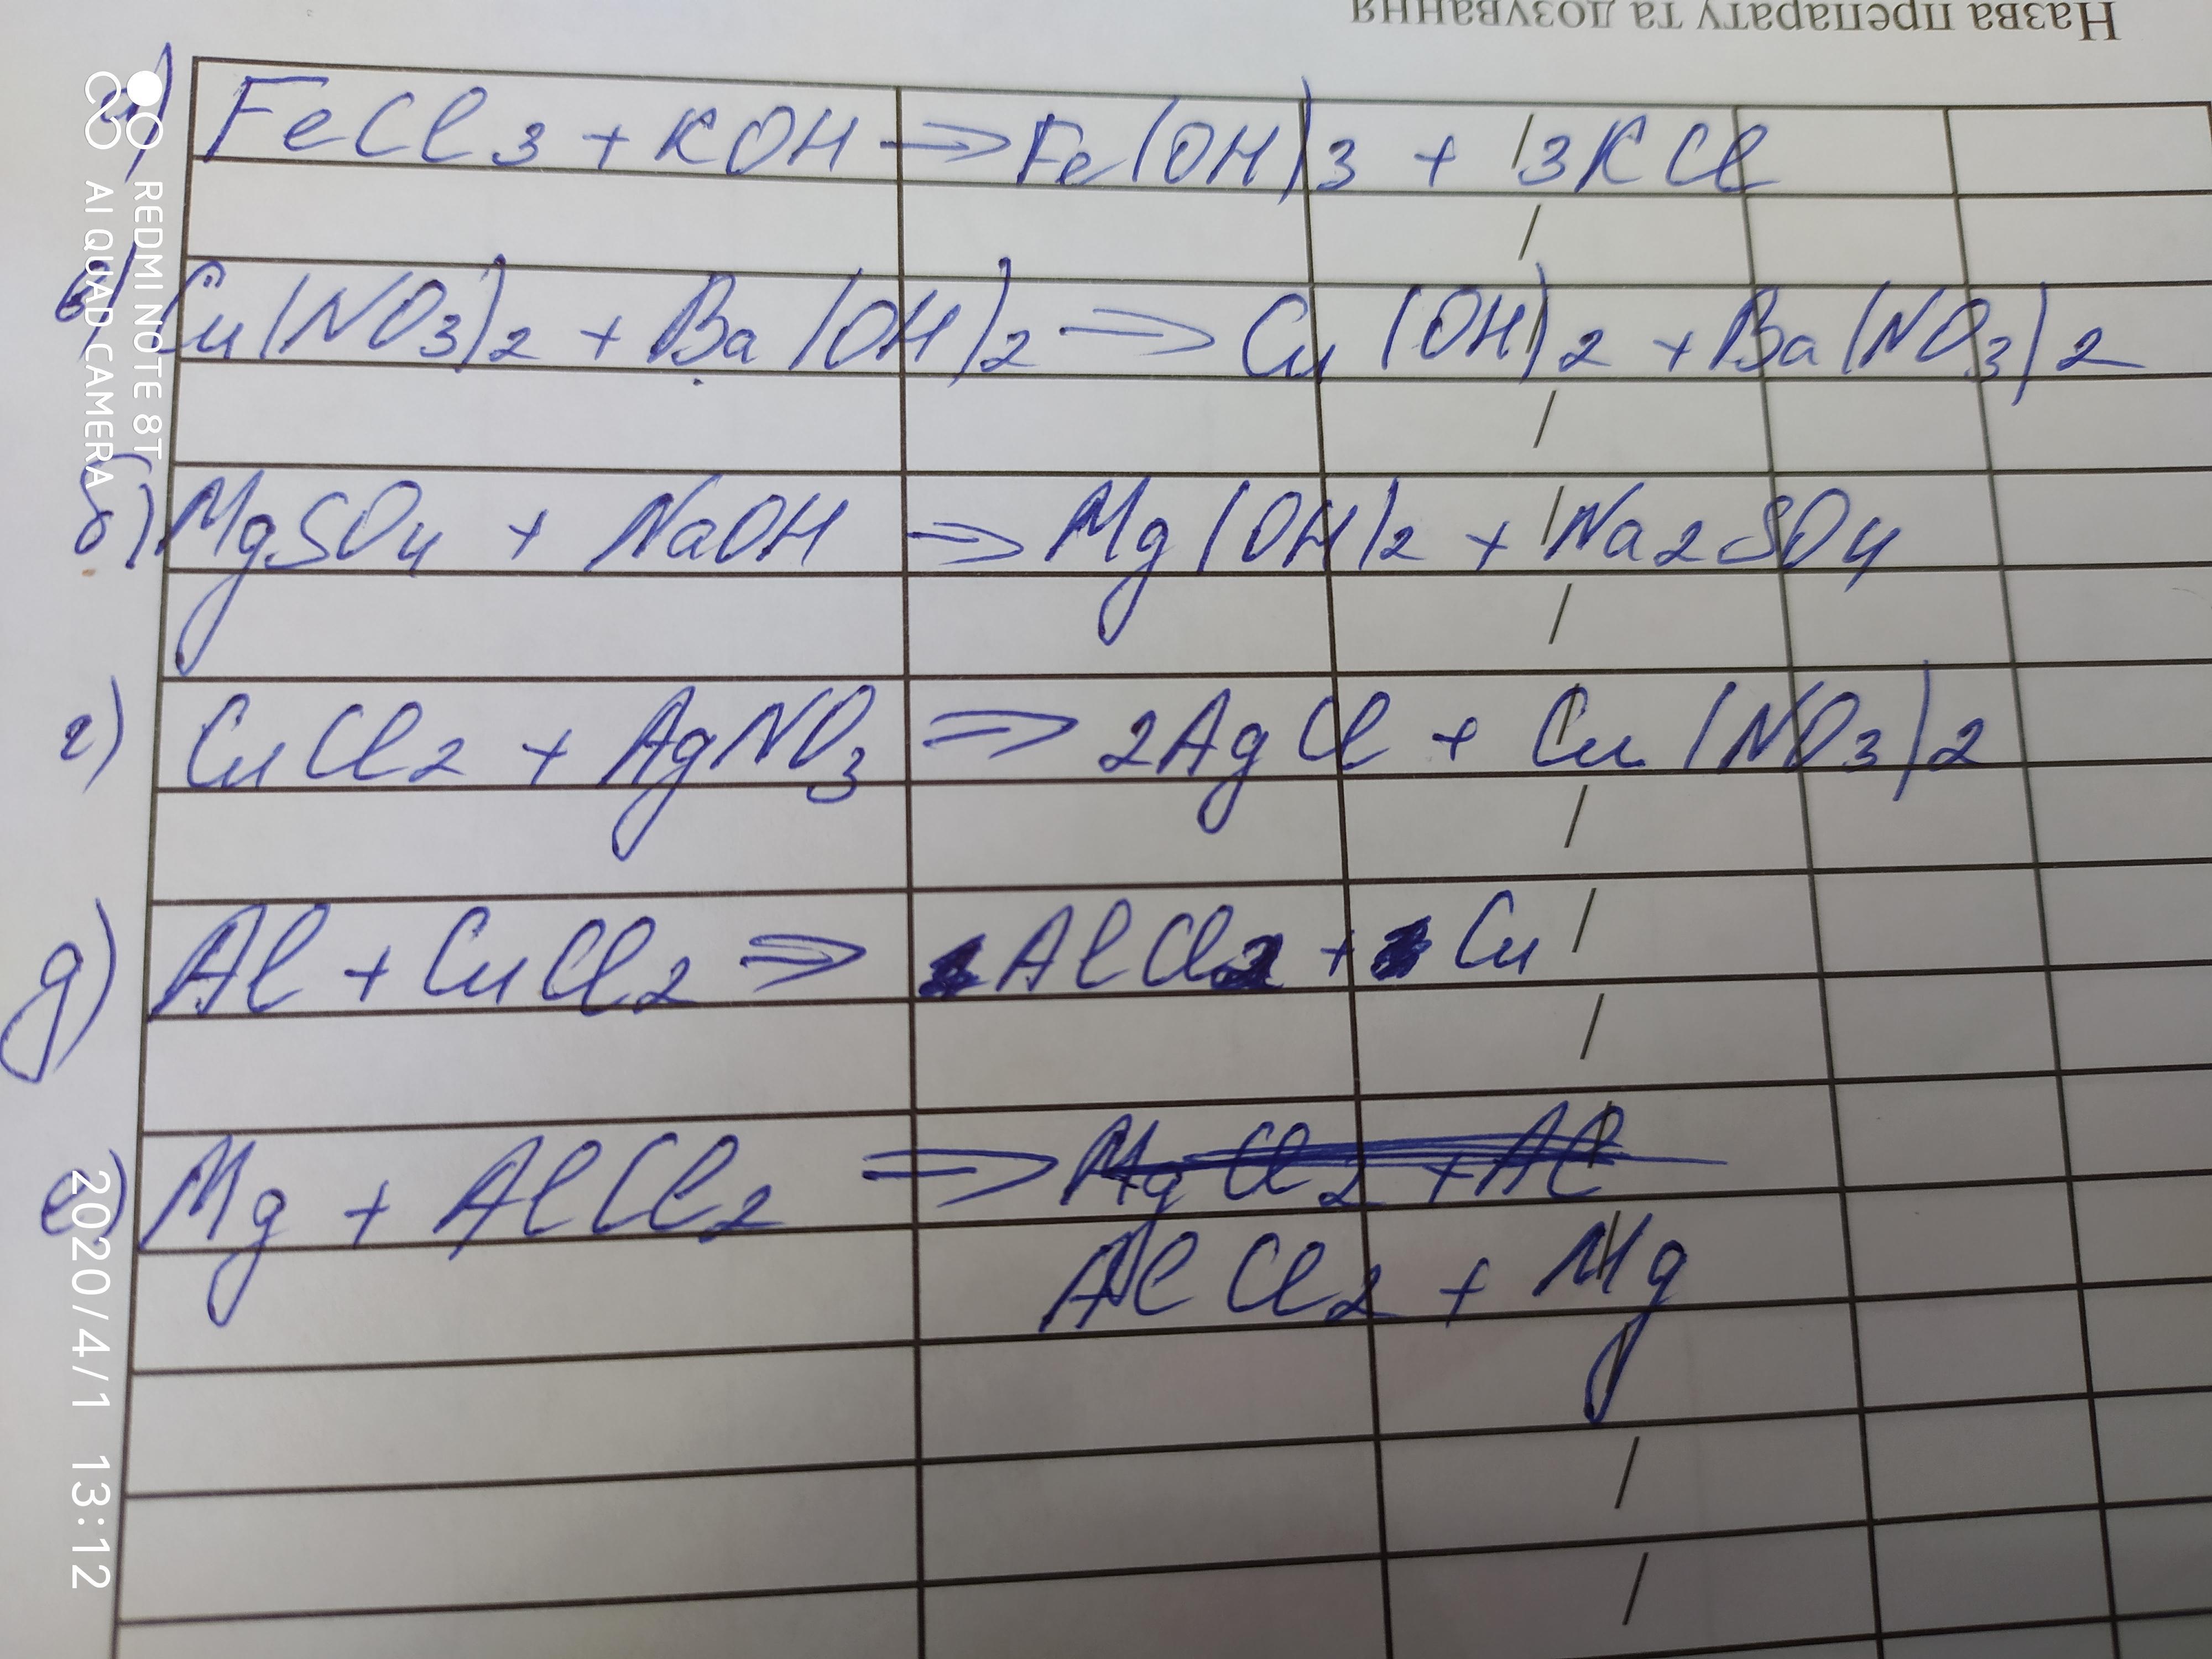 Назва препарату та дозування
а) FeCl3 + KOH => Fe(OH)3 + 3KCl
в) Cu(NO3)2 + Ba(OH)2 => Cu(OH)2 + Ba(NO3)2
б) MgSO4 + NaOH => Mg(OH)2 + Na2SO4
г) CuCl2 + AgNO3 => 2AgCl + Cu(NO3)2
д) Al + CuCl2 => AlCl2 + Cu
е) Mg + AlCl2 => MgCl2 + Al
AlCl2 + Mg
REDMI NOTE 8T
AI QUAD CAMERA
2020/4/1 13:12